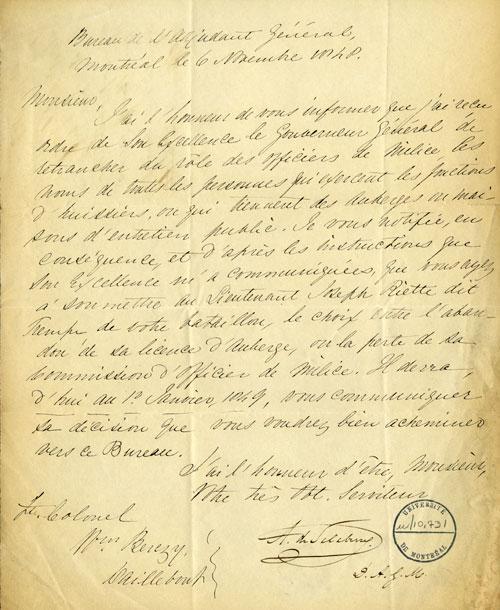 Bureau de l'Adjudant Général,
Montréal le 6 Novembre 1848.
Monsieur,
J'ai l'honneur de vous informer que j'ai reçu
ordre de Son Excellence le Gouverneur Général de
retrancher du rôle des officiers de Milice les
noms de toutes les personnes qui exercent les fonctions
d'huissiers, ou qui tiennent des Auberges ou mai-
sons d'entretien public. Je vous notifie, en
conséquence, et d'après les instructions que
Son Excellence m'a communiquées, que vous ayez
à soumettre au Lieutenant Joseph Riette dit
Trempe de votre bataillon, le choix entre l'aban-
don de sa licence d'Auberge, ou la perte de sa
Commission d'Officier de Milice. Il devra,
d'hui au 1er Janvier, 1849, vous communiquer
sa décision que vous voudrez bien acheminer
vers ce Bureau.
J'ai l'honneur d'être, Monsieur,
Votre très Obt. Serviteur
Lt. Colonel
Wm Berczy.
Daillebout
D. A. G. M.
UNIVERSITÉ
u/10,731
DE MONTRÉAL